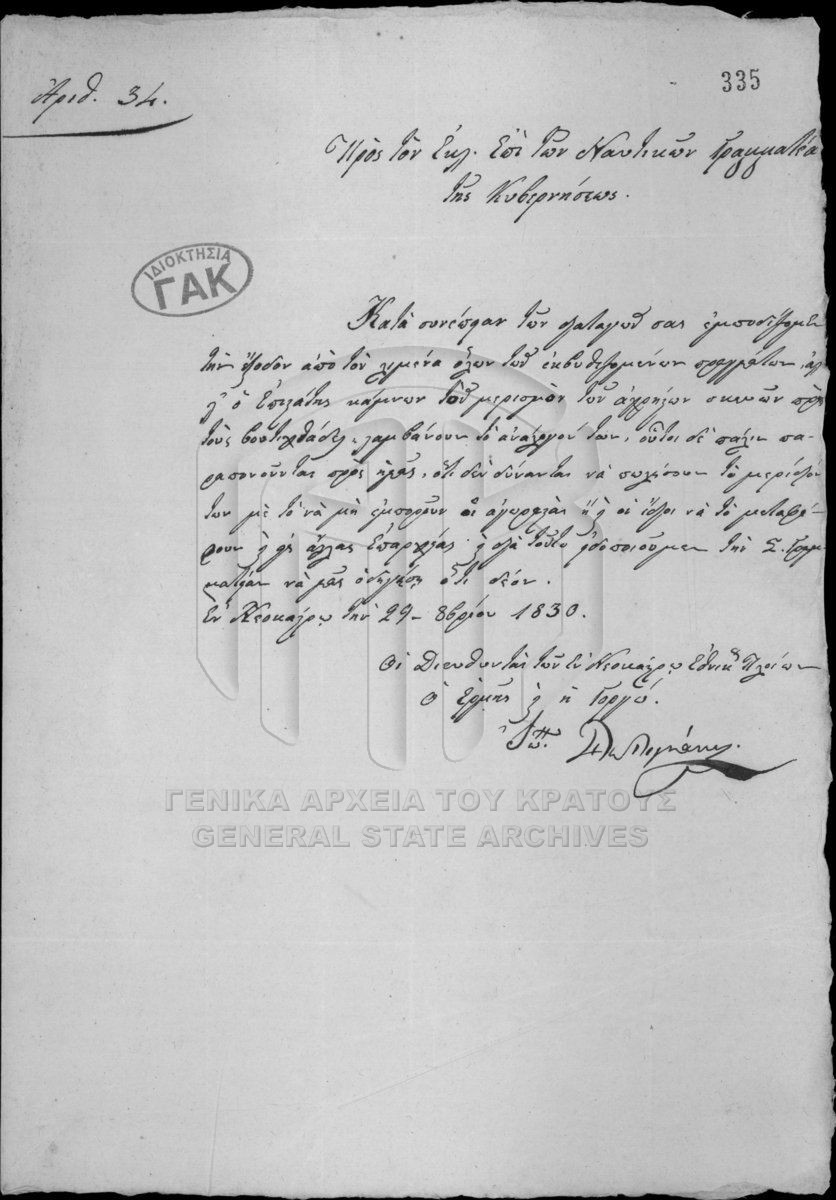 335
Ἀριθ. 34.
Πρὸς τὸν Ἐκλ. Ἐπὶ τῶν Ναυτικῶν Γραμματέα
τῆς Κυβερνήσεως.
ΙΔΙΟΚΤΗΣΙΑ
ΓΑΚ
Κατὰ συνέπειαν τῶν διαταγῶν σας ἐμποδίζομεν
τὴν ἔξοδον ἀπὸ τὸν λιμένα ὅλων τῶν ἐκβυθιζομένων πραγμάτων, ἀλ
λ' ὁ Ἐπιστάτης κάμνων τὸν μερισμὸν τῶν σκευῶν πρὸς
τοὺς λαμβάνουν τὸ ἀνάλογόν των, οὗτοι δὲ πάλιν πα-
ραπονοῦνται πρὸς ἡμᾶς, ὅτι δὲν δύνανται νὰ πωλήσουν τὸ μερίδιόν
των μὲ τὸ νὰ μὴ ἐμποροῦν οἱ ἀγορασταὶ ἢ οἱ ἴδιοι νὰ τὸ μεταφέ-
ρουν εἰς ἄλλας ἐπαρχίας· διὰ τοῦτο εἰδοποιοῦμεν τὴν Σ. Γραμ
ματείαν νὰ μᾶς ὁδηγήσῃ ὅ,τι δέον.
Ἐν Νεοκάστρῳ τὴν 29 8βρίου 1830.
Οἱ Διευθυνταὶ τῶν ἐν Νεοκάστρῳ Ἐθνικῶν Πλοίων
Ὁ Ἑρμῆς ἡ Γοργώ.
ΓΕΝΙΚΑ ΑΡΧΕΙΑ ΤΟΥ ΚΡΑΤΟΥΣ
GENERAL STATE ARCHIVES